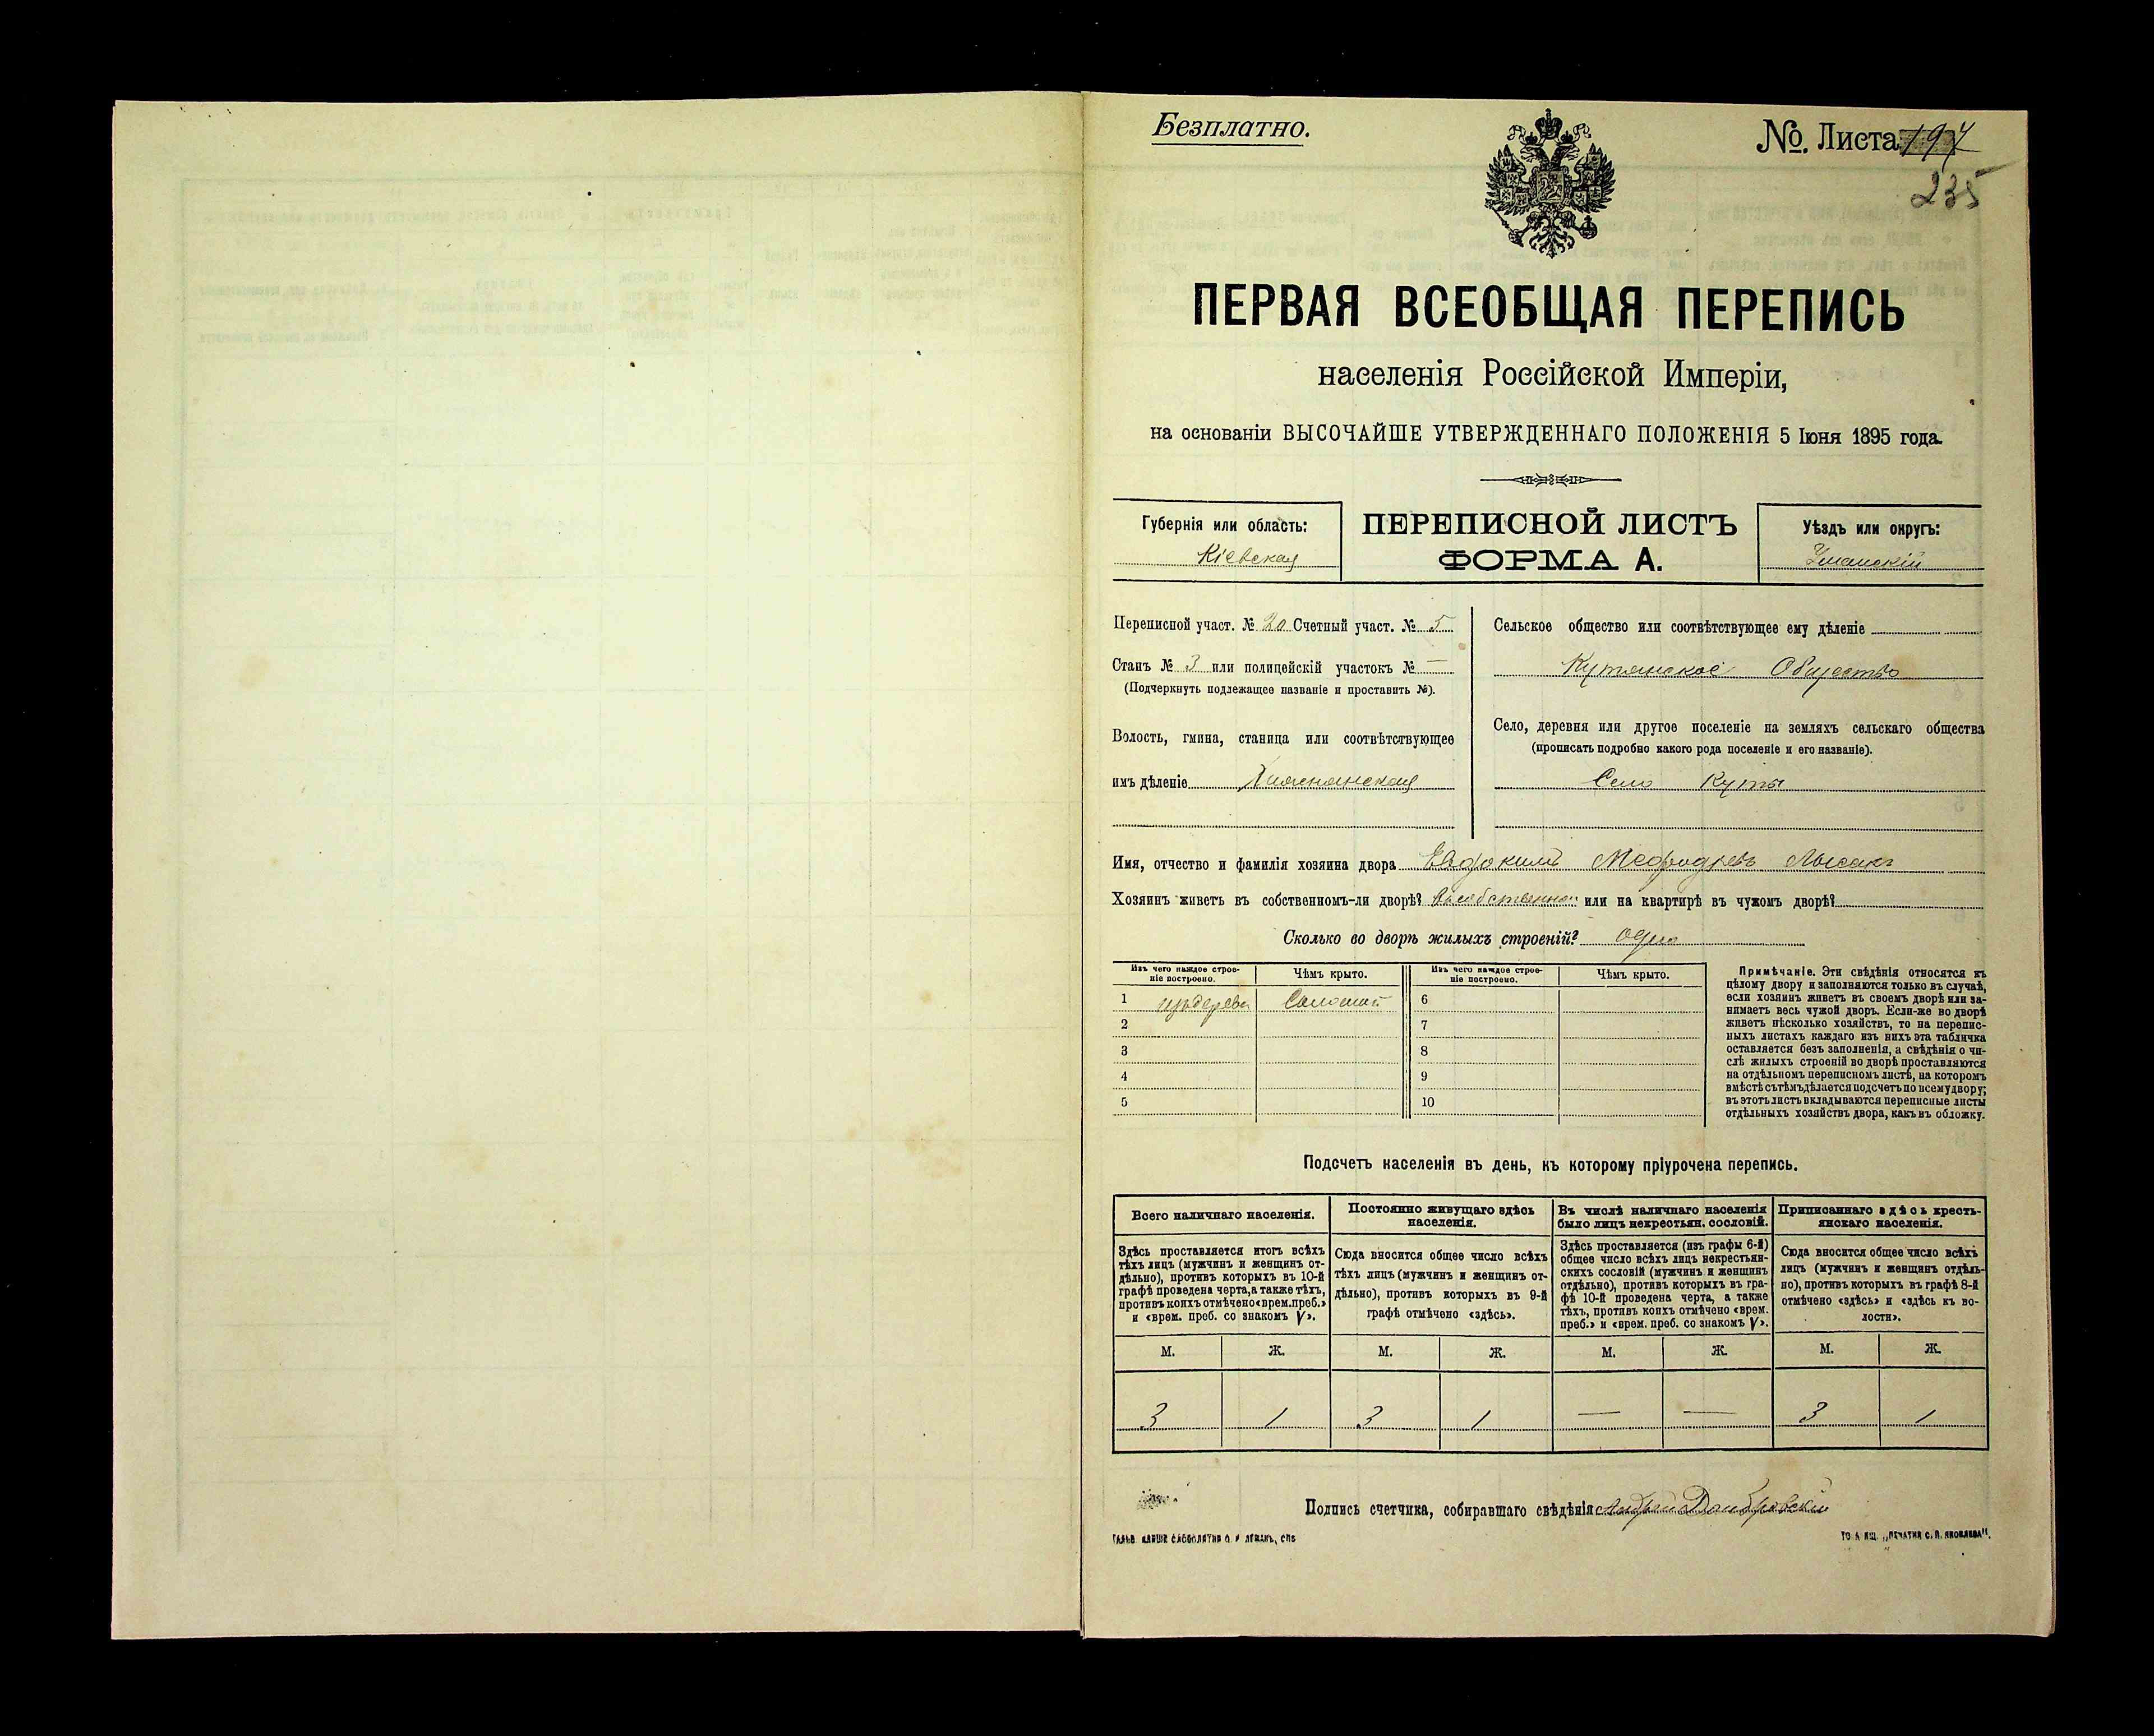 Безплатно.
№. Листа 197
235
ПЕРВАЯ ВСЕОБЩАЯ ПЕРЕПИСЬ
населенія Россійской Имперіи,
на основаніи ВЫСОЧАЙШЕ УТВЕРЖДЕННАГО ПОЛОЖЕНІЯ 5 Іюня 1895 года.
Губернія или область:
Кіевская
ПЕРЕПИСНОЙ ЛИСТЪ
ФОРМА А.
Уѣздъ или округъ:
Уманскій
Переписной участ. № 20 Счетный участ. № 5
Станъ № 3 или полицейскій участокъ № —
(Подчеркнуть подлежащее названіе и проставить №).
Волость, гмина, станица или соотвѣтствующее
имъ дѣленіе
Сельское общество или соотвѣтствующее ему дѣленіе
Кутянское Общество
Село, деревня или другое поселеніе на земляхъ сельскаго общества
(прописать подробно какого рода поселеніе и его названіе).
Село Куты
Имя, отчество и фамилія хозяина двора Евдокимъ Лысакъ
Хозяинъ живетъ въ собственномъ-ли дворѣ? или на квартирѣ въ чужомъ дворѣ?
Сколько во дворѣ жилыхъ строеній? одно
Изъ чего каждое строе-
ніе построено.
Чѣмъ крыто.
Изъ чего каждое строе-
ніе построено.
Чѣмъ крыто.
1 изъ дерева Соломой 6
2 7
3 8
4 9
5 10
Примѣчаніе. Эти свѣдѣнія относятся къ
цѣлому двору и заполняются только въ случаѣ,
если хозяинъ живетъ въ своемъ дворѣ или за-
нимаетъ весь чужой дворъ. Если-же во дворѣ
живетъ нѣсколько хозяйствъ, то на перепис-
ныхъ листахъ каждаго изъ нихъ эта табличка
оставляется безъ заполненія, а свѣдѣнія о чи-
слѣ жилыхъ строеній во дворѣ проставляются
на отдѣльномъ переписномъ листѣ, на которомъ
вмѣстѣ сътѣмъ дѣлается подсчетъ по всему двору;
въ этотъ листъ вкладываются переписные листы
отдѣльныхъ хозяйствъ двора, какъ въ обложку.
Подсчетъ населенія въ день, къ которому пріурочена перепись.
Всего наличнаго населенія.
Здѣсь проставляется итогъ всѣхъ
тѣхъ лицъ (мужчинъ и женщинъ от-
дѣльно), противъ которыхъ въ 10-й
графѣ проведена черта, а также тѣхъ,
противъ коихъ отмѣчено «врем. преб.»
и «врем. преб. со знакомъ V».
Постоянно живущаго здѣсь
населенія.
Сюда вносится общее число всѣхъ
тѣхъ лицъ (мужчинъ и женщинъ от-
дѣльно), противъ которыхъ въ 9-й
графѣ отмѣчено «здѣсь».
Въ числѣ наличнаго населенія
было лицъ некрестьян. сословій.
Здѣсь проставляется (изъ графы 6-й)
общее число всѣхъ лицъ некрестьян-
скихъ сословій (мужчинъ и женщинъ
отдѣльно), противъ которыхъ въ гра-
фѣ 10-й проведена черта, а также
тѣхъ, противъ коихъ отмѣчено «врем.
преб.» и «врем. преб. со знакомъ V».
Приписаннаго здѣсь кресть-
янскаго населенія.
Сюда вносится общее число всѣхъ
лицъ (мужчинъ и женщинъ отдѣль-
но), противъ которыхъ въ графѣ 8-й
отмѣчено «здѣсь» и «здѣсь къ во-
лости».
М. Ж. М. Ж. М. Ж. М. Ж.
3 1 3 1 — — 3 1
Подпись счетчика, собиравшаго свѣдѣнія Андрей Домбровскій